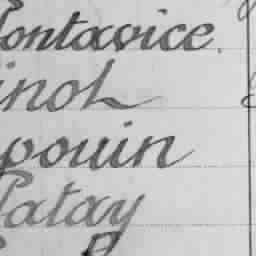 ontavice.
inot
pouin
atay